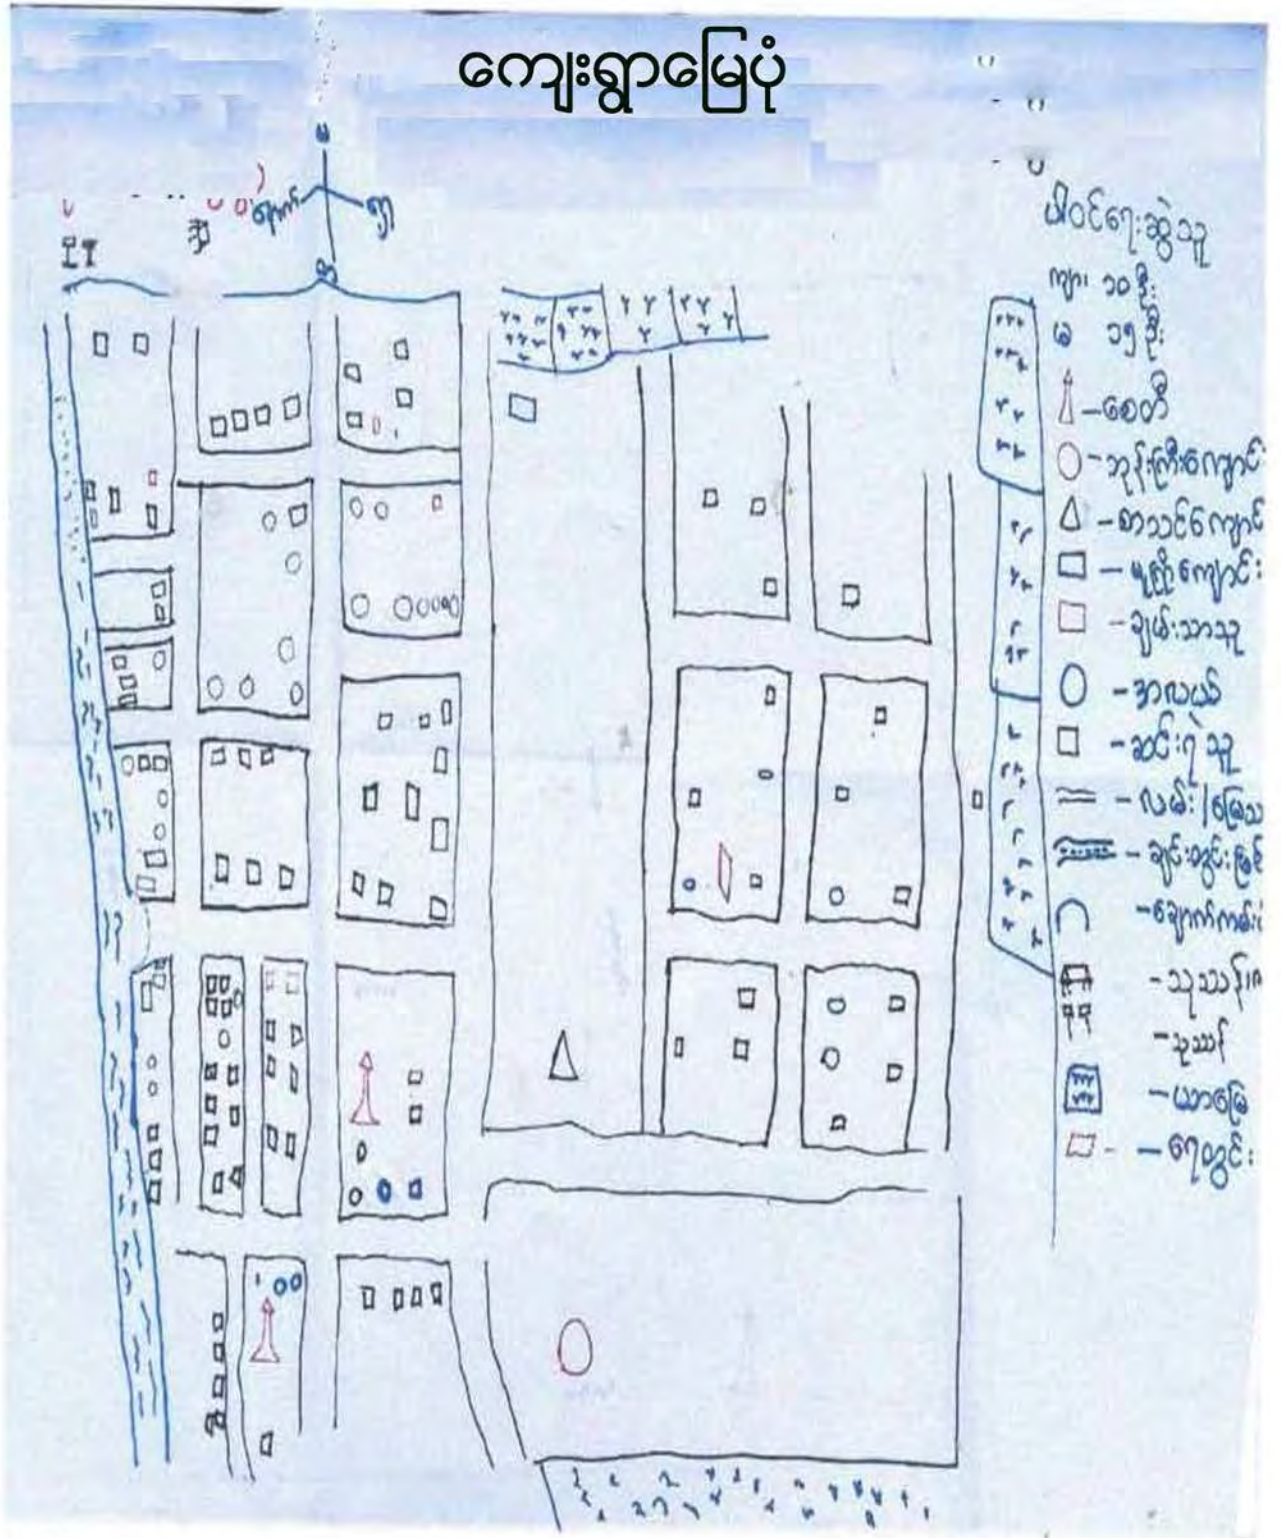 ကျေးရွာမြေပုံ
မ
နောက် ရှေ့
တ
ပါဝင်ရေးဆွဲသူ
ကျား ၁၀ ဦး
မ ၁၅ ဦး
- စေတီ
- ဘုန်းကြီးကျောင်း
- စာသင်ကျောင်း
- မူကြိုကျောင်း
- ချမ်းသာသူ
- အလယ်
- ဆင်းရဲသူ
- လမ်း/မြေသ
- ချင်းတွင်းမြစ်
- ချောက်ကမ်း
- သုဿန်
- သုဿန်
- ယာမြေ
- ရေတွင်း